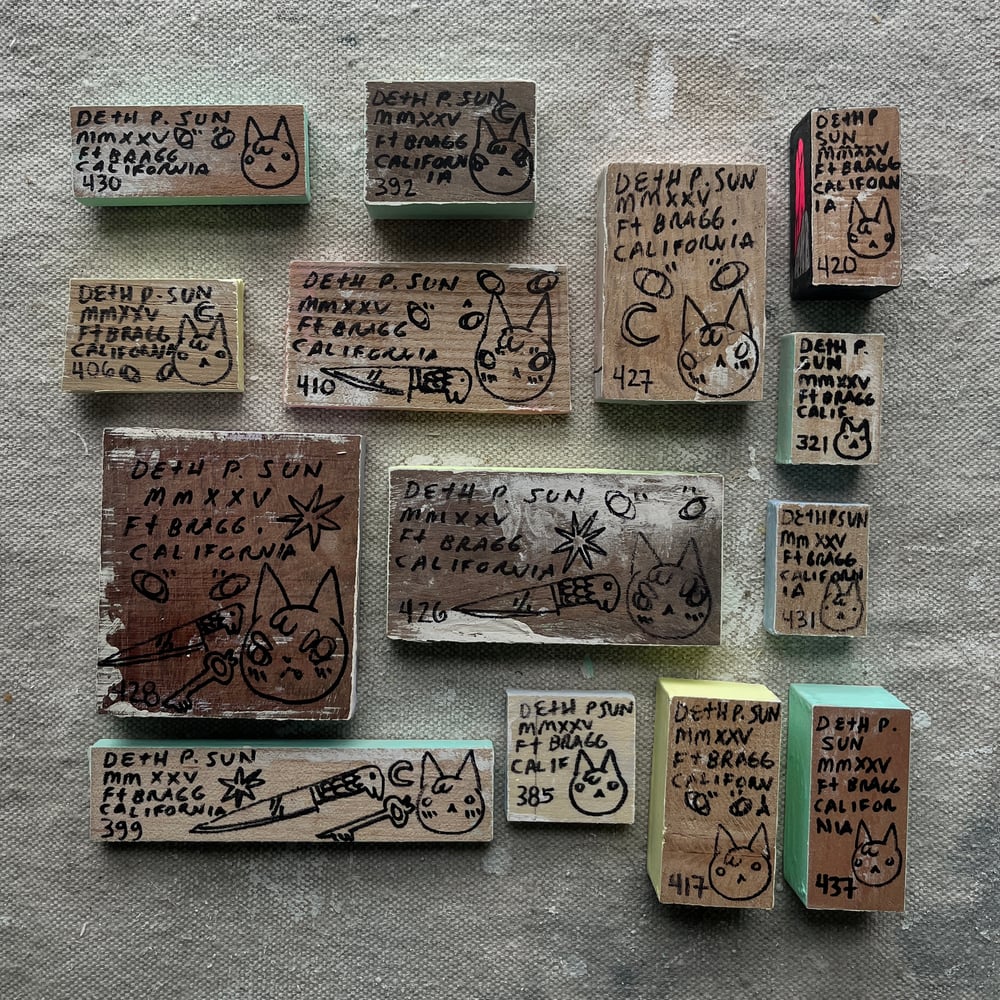 DETH P. SUN
MMXXV
Ft BRAGG
CALIFORNIA
430
DETH P. SUN
MMXXV
Ft BRAGG
CALIFORN
IA
392
DETH P. SUN
MMXXV
Ft BRAGG.
CALIFORNIA
427
DETH P
SUN
MMXXV
Ft BRAGG
CALIFORN
IA
420
DETH P. SUN
MMXXV
Ft BRAGG
CALIFORNIA
406
DETH P. SUN
MMXXV
Ft BRAGG
CALIFORNIA
410
DETH P.
SUN
MMXXV
Ft BRAGG
CALIF
321
DETH P. SUN
MMXXV
Ft BRAGG.
CALIFORNIA
428
DETH P. SUN
MMXXV
Ft BRAGG
CALIFORNIA
426
DETH P SUN
MMXXV
Ft BRAGG
CALIFORN
IA
431
DETH P. SUN
MMXXV
Ft BRAGG
CALIFORNIA
399
DETH P SUN
MMXXV
Ft BRAGG
CALIF
385
DETH P. SUN
MMXXV
Ft BRAGG
CALIFORN
IA
417
DETH P.
SUN
MMXXV
Ft BRAGG
CALIFOR
NIA
437